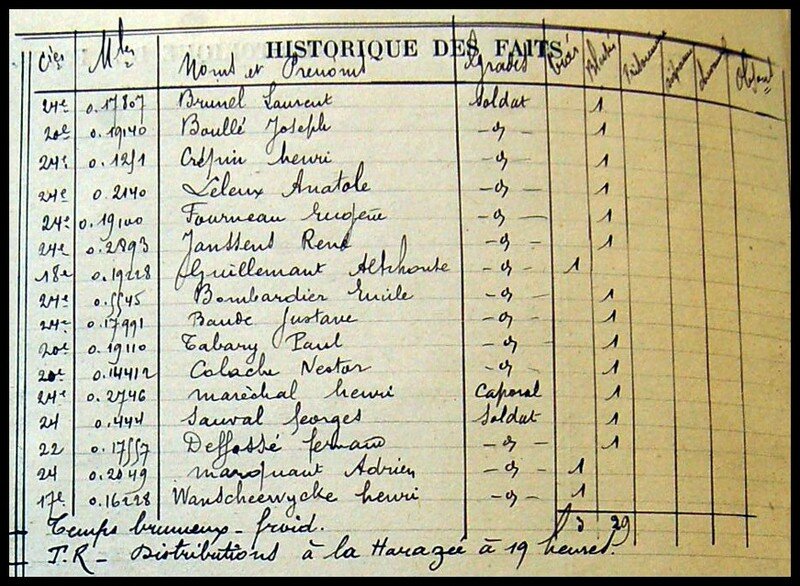 HISTORIQUE DES FAITS
Cies Mles Noms et Prénoms Grades Tués Blessés Prisonniers Disparus
24e 0.17807 Brunel Laurent Soldat 1
20e 0.19140 Boullé Joseph -d- 1
24e 0.1251 Crépin henri -d- 1
24e 0.2140 Leleux Anatole -d- 1
24e 0.19100 Fourneau Eugène -d- 1
24e 0.2893 Janssens René -d- 1
18e 0.19228 Guillemant Alphonse -d- 1
24e 0.5545 Bombardier Emile -d- 1
24e 0.17991 Baude Gustave -d- 1
20e 0.19110 Tabary Paul -d- 1
20e 0.14412 Colache Nestor -d- 1
24e 0.2746 maréchal henri Caporal 1
24 0.444 Sauval Georges Soldat 1
22 0.17557 Deffossé fernand -d- 1
24 0.2049 marquant Adrien -d- 1
17e 0.16228 Wanscheewycke henri -d- 1
3 29
Temps brumeux - froid.
T.R - Distributions à la Harazée à 19 heures.